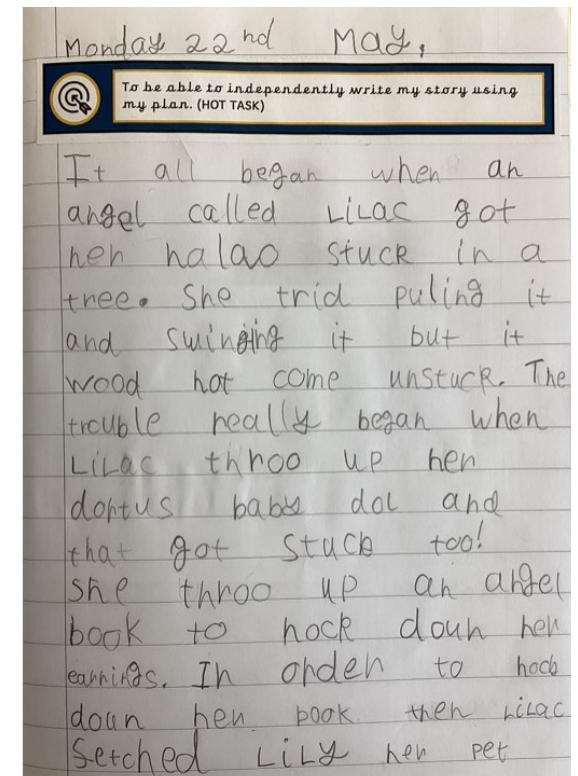 Monday 22nd May,
To be able to independently write my story using
my plan. (HOT TASK)
It all began when an
angel called LiLac got
her halao stuck in a
tree. She trid puling it
and swinging it but it
wood not come unstuck. The
trouble really began when
LiLac throo up her
dortus baby dol and
that got stuck too!
she throo up an angel
book to nock doun her
earrings. In order to nock
doun her book then LiLac
Fetched LiLy her pet